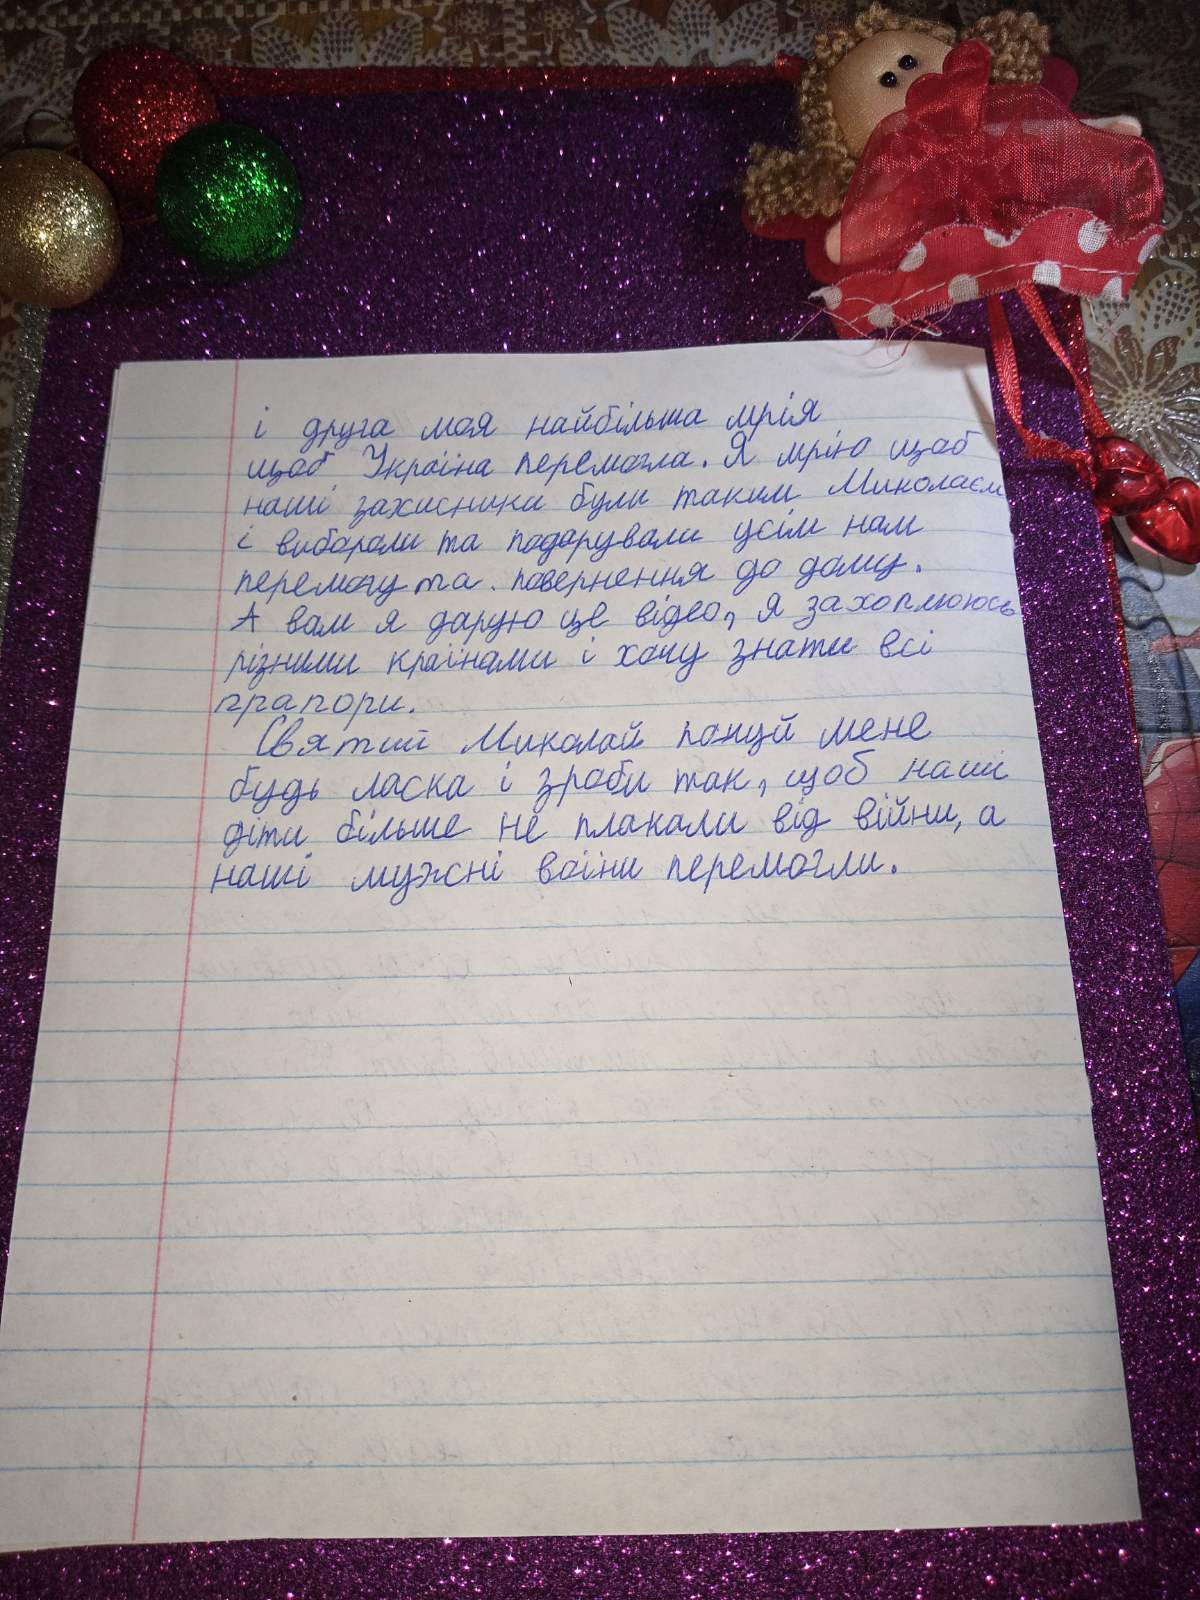 і друга моя найбільша мрія
щоб Україна перемогла. Я мрію щоб
наші захисники були таким Миколаєм
і вибороли та подарували усім нам
перемогу та повернення до дому.
А вам я дарую це відео, я захоплююсь
різними країнами і хочу знати всі
прапори.
Святий Миколай почуй мене
будь ласка і зроби так, щоб наші
діти більше не плакали від війни, а
наші мужні воїни перемогли.